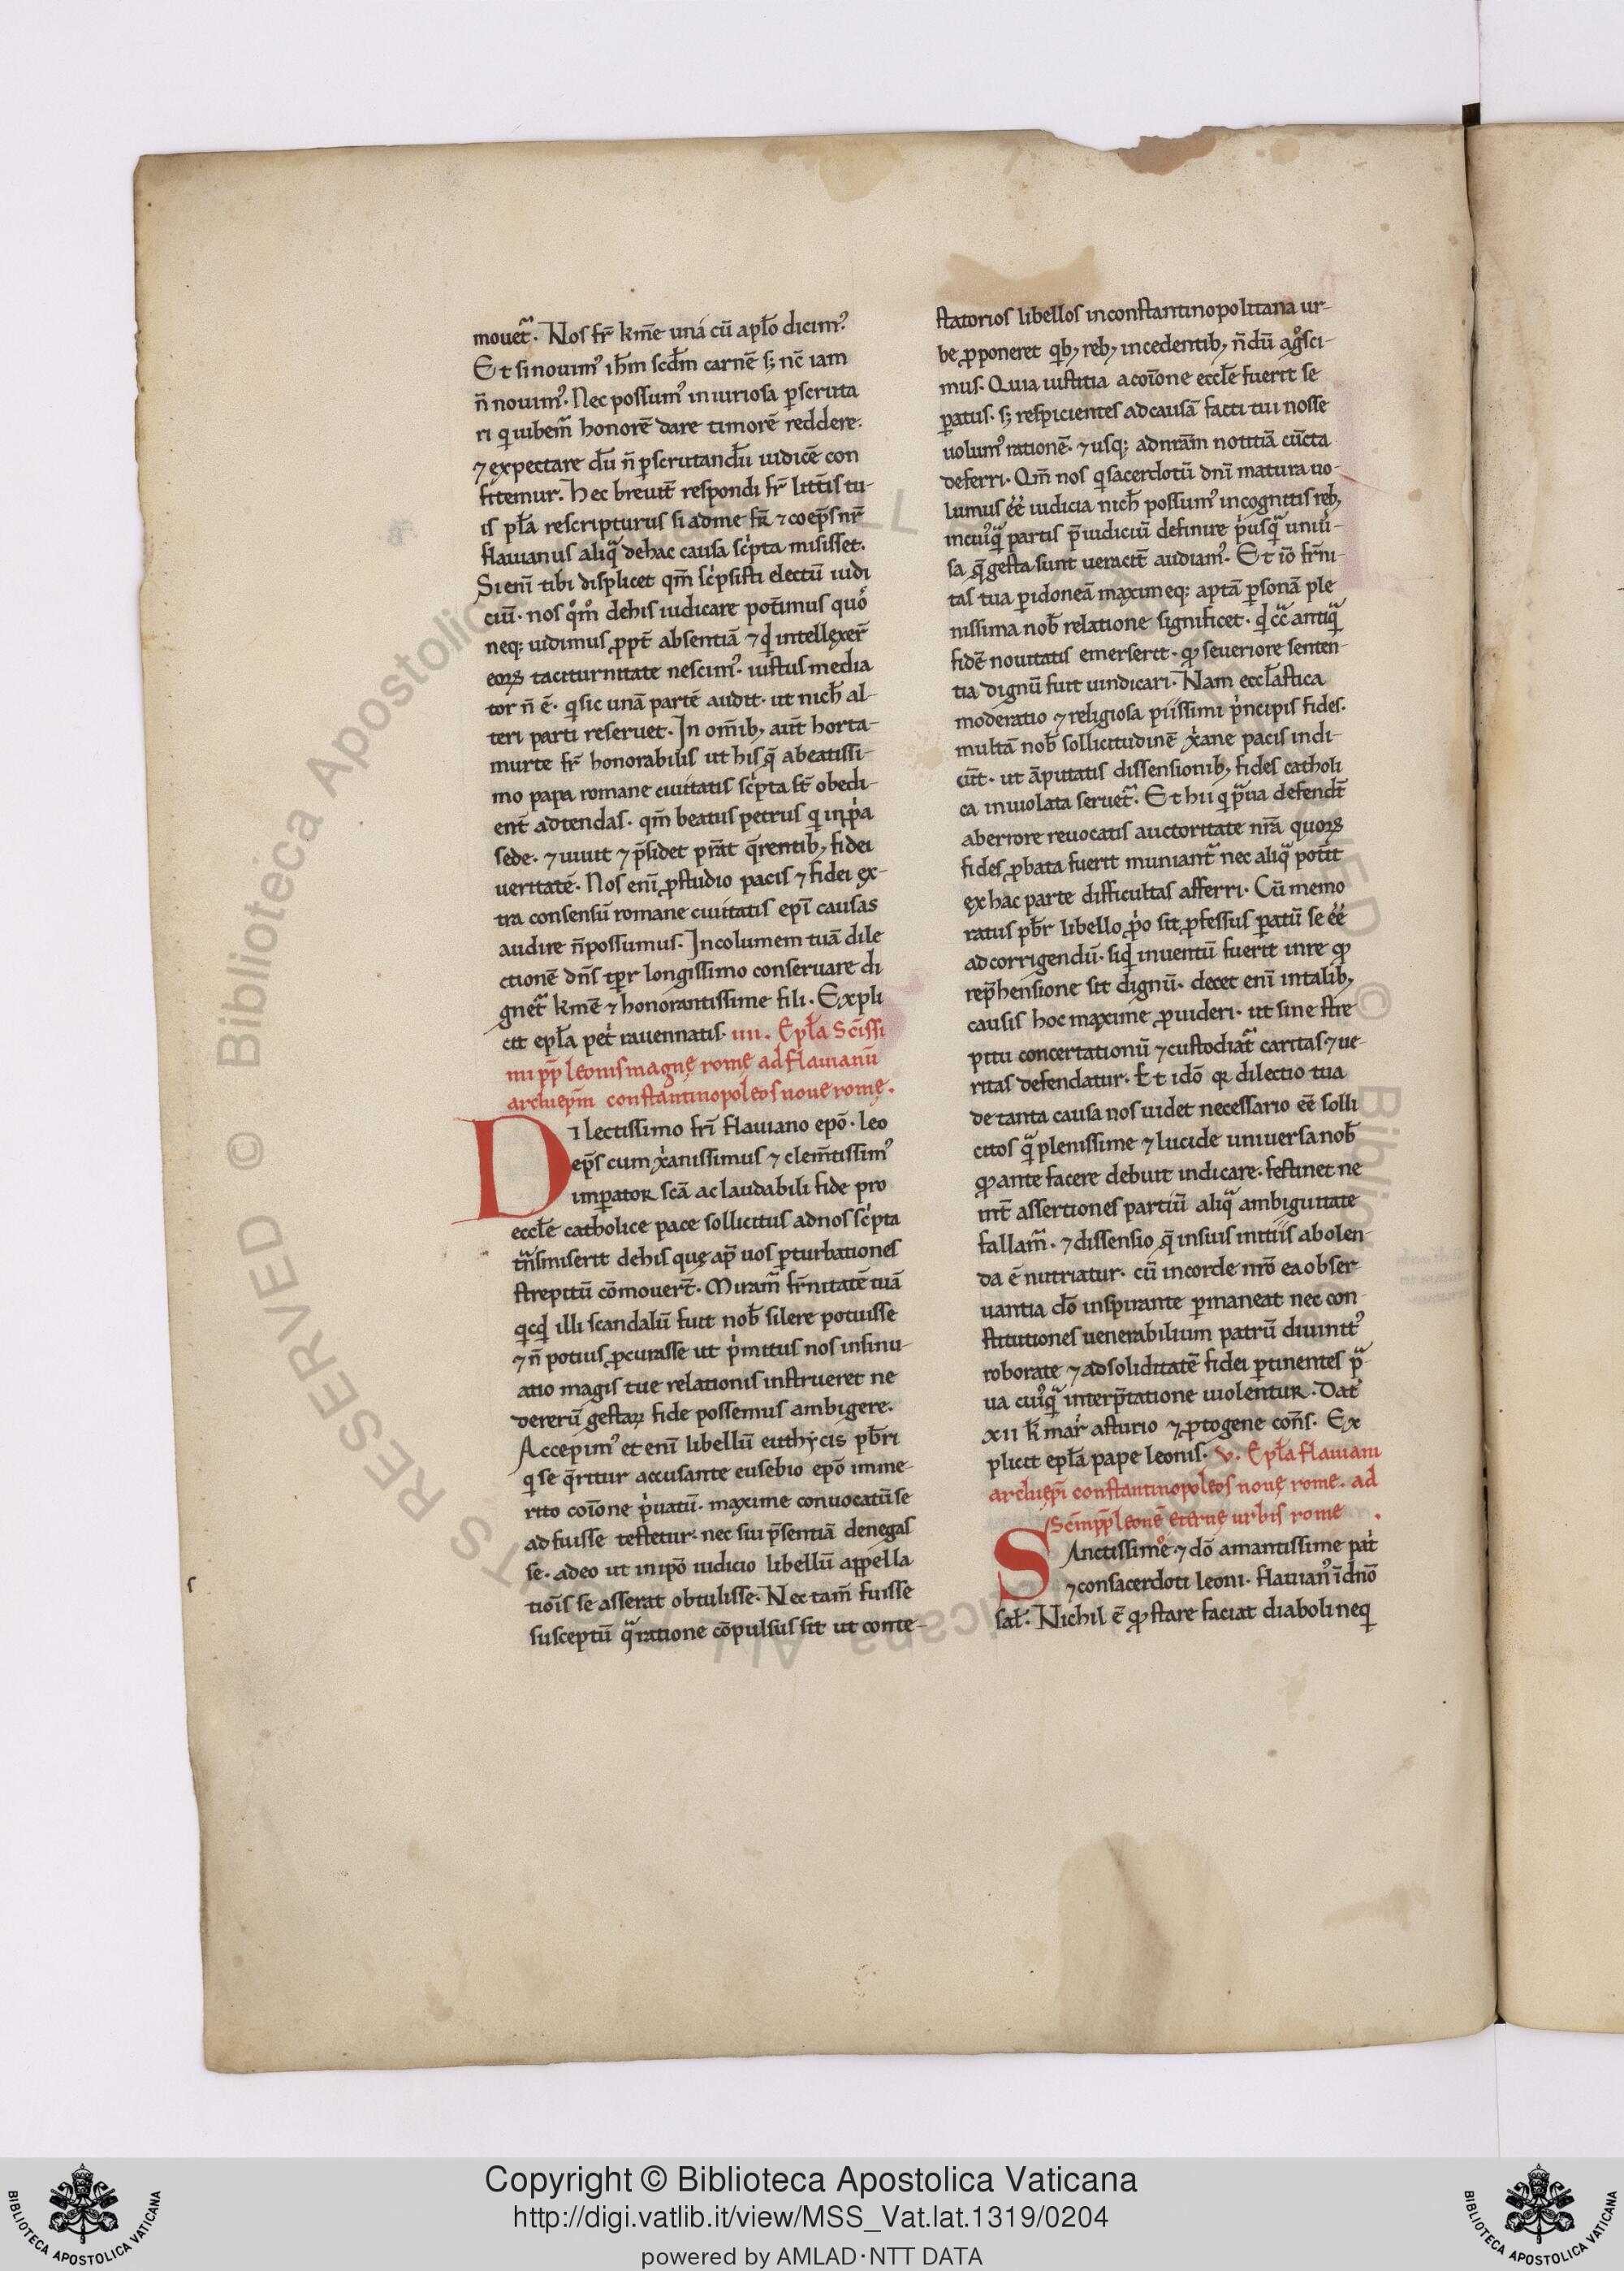 mouet᷑. Nos fr̄ km̄e unā cū apłō dicim᷒
Et si nouim᷒ ihm̄ scđm carnē sꝫ nc̄ iam
n̄ nouim᷒. Nec possum᷒ iniuriosa ꝑscruta
ri q iubem᷑ honorē dare timorē reddere.
⁊ expectare dū n̄ ꝑscrutandū iudicē con
fitemur. Hec breuit̄ respondi fr̄ litt̄is tu-
is pła rescripturus si ad me fr̄ ⁊ coep̄s nr̄
flauianus aliq̄ de hac causa sc̍pta misisset.
Si eni̅ tibi displicet qm̄ sc̍psisti electū iudi
ciū. nos qͦmͦ de his iudicare potim̄us quos̍
neqꝫ uidimus ꝓpt̄ absentiā ⁊ qd̍ intellexer̄
eoꝝ taciturnitate nescim᷒. iustus media
tor n̄ ē. q sic unā partē audit. ut nich̄ al-
teri parti reseruet. In om̄ibꝫ aut̄ horta-
mur te fr̄ honorabilis ut his q̄ a beatissi-
mo papa romane ciuitatis sc̍pta st̄ obedi-
ent̄ adtendas. qm̄ beatus petrus q in p̍pa
sede. ⁊ uiuit ⁊ p̄sidet pr̄at q̄rentibꝫ fidei
ueritatē. Nos eni̅ ꝓ studio pacis ⁊ fidei ex-
tra consensū romane ciuitatis epī causas
audire n̄ possumus. Incolumem tuā dile
ctionē dn̄s tꝑr longissimo conseruare di
gnet᷑ km̄e ⁊ honorantissime fili. Expli
cit epła pet̍ rauennatis. iııı. Epła Sc̄issi
mi pp̄ leonis magnę romę ad flauianū
archiepm̄ constantinopoleos noue romę.
Dilectissimo fr̄i flauiano epō. leo
ep̄s cum xp̍anissimus ⁊ clem̄tissim᷒
imꝑator scā ac laudabili fide pro
eccłe catholice pace sollicitus ad nos sc̍pta
tn̄smiserit de his quę ap̄ uos ꝑturbationes
strepitū cōmouer̄t. Miram᷑ fr̄nitatē tuā
qcqd̍ illi scandalū fuit nob̄ silere potuisse
⁊ n̄ potius ꝓcurasse ut p̍mitus nos insinu-
atio magis tue relationis instrueret ne
de rerū gestaꝝ fide possemus ambigere.
Accepim᷒ et eni̅ libellū euthycis pb̄ri
q se q̄ritur accusante eusebio epō imme-
rito coīone p̍uatū. maxime conuocatū se
adfuisse testetur. nec sui p̄sentiā denegas
se. adeo ut in ip̄o iudicio libellū appella
tiōis se asserat obtulisse. Nec tam̄ fuisse
susceptū q̄ ratione cōpulsus sit ut conte-
statorios libellos in constantinopolitana ur-
be ꝓponeret qbꝫ rebꝫ incedentibꝫ n̄dū agͦsci-
mus. Quia iustitia a coīone eccłe fuerit se
ꝑatus. sꝫ respicientes ad causā facti tui nosse
uolum᷒ rationē. ⁊ usqꝫ ad nr̄am notitiā cūcta
deferri. Qm̄ nos q sacerdotū dn̄i matura uo-
lumus ēē iudicia nich̄ possum᷒ incognitis rebꝫ
in cui᷒q̄ partis p̄iudiciū definire p̍usq̄ uniu̍-
sa q̄ gesta sunt ueracit̄ audiam᷒. Et iō fr̄ni-
tas tua ꝑ idoneā maximeqꝫ aptā ꝑsonā ple
nissima nob̄ relatione significet. qd̍ c̄c antiq̄
fidē nouitatis emerserit. qͩ seueriore senten-
tia dignū fuit uindicari. Nam eccłastica
moderatio ⁊ religiosa piissimi p̍ncipis fides.
multā nob̄ sollicitudinē xp̍ane pacis indi-
cūt. ut āputatis dissensionibꝫ fides catholi
ca inuiolata seruet᷑. Et hii q p̄ua defendt̄
ab errore reuocatis auctoritate nr̄a quoꝝ
fides ꝓbata fuerit muniant᷑ nec aliq̄ pot̍it
ex hac parte difficultas afferri. Cū memo
ratus pb̄r libello ꝓp̍o sit ꝓfessus ꝑatū se ēē
ad corrigendū. siqd̍ inuentū fuerit in re qͩ
rep̄hensione sit dignū. decet eni̅ in talibꝫ
causis hoc maxime ꝓuideri. ut sine stre
pitu concertationū ⁊ custodiat᷑ caritas ⁊ ue-
ritas defendatur. Et idō qꝛ dilectio tua
de tanta causa nos uidet necessario eē solli
citos q̄ plenissime ⁊ lucide uniuersa nob̄
qͩ ante facere debuit indicare. festinet ne
int̄ assertiones partiū aliq̄ ambiguitate
fallam᷑. ⁊ dissensio q̄ in suis initiis abolen-
da ē nutriatur. cū in corde nr̄o ea obser
uantia dō inspirante ꝑmaneat nec con
stitutiones uenerabilium patrū diuinit᷒
roborate ⁊ ad soliditatē fidei ꝑtinentes p̄-
ua cui᷒q̄ interp̄tatione uiolentur. Dat̍
xıı k̄ mar̍ asturio ⁊ ꝓtogene con̄s. Ex
plicit epła pape leonis. v. Epła flauiani
archiepī constantinopoleos nouę rome. ad
Sc̄im pp̄ leonē eternę urbis romę.
Sanctissimͦe ⁊ dō amantissime pat̍
⁊ consacerdoti leoni. flauian᷒ i̅ dn̄o
sał. Nichil ē qͩ stare faciat diaboli neq
Copyright © Biblioteca Apostolica Vaticana
http://digi.vatlib.it/view/MSS_Vat.lat.1319/0204
powered by AMLAD·NTT DATA